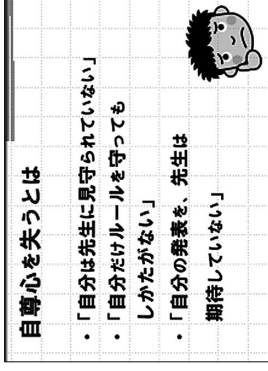 自尊心を失うとは
・「自分は先生に見守られていない」
・「自分だけルールを守っても
しかたがない」
・「自分の発表を、先生は
期待していない」